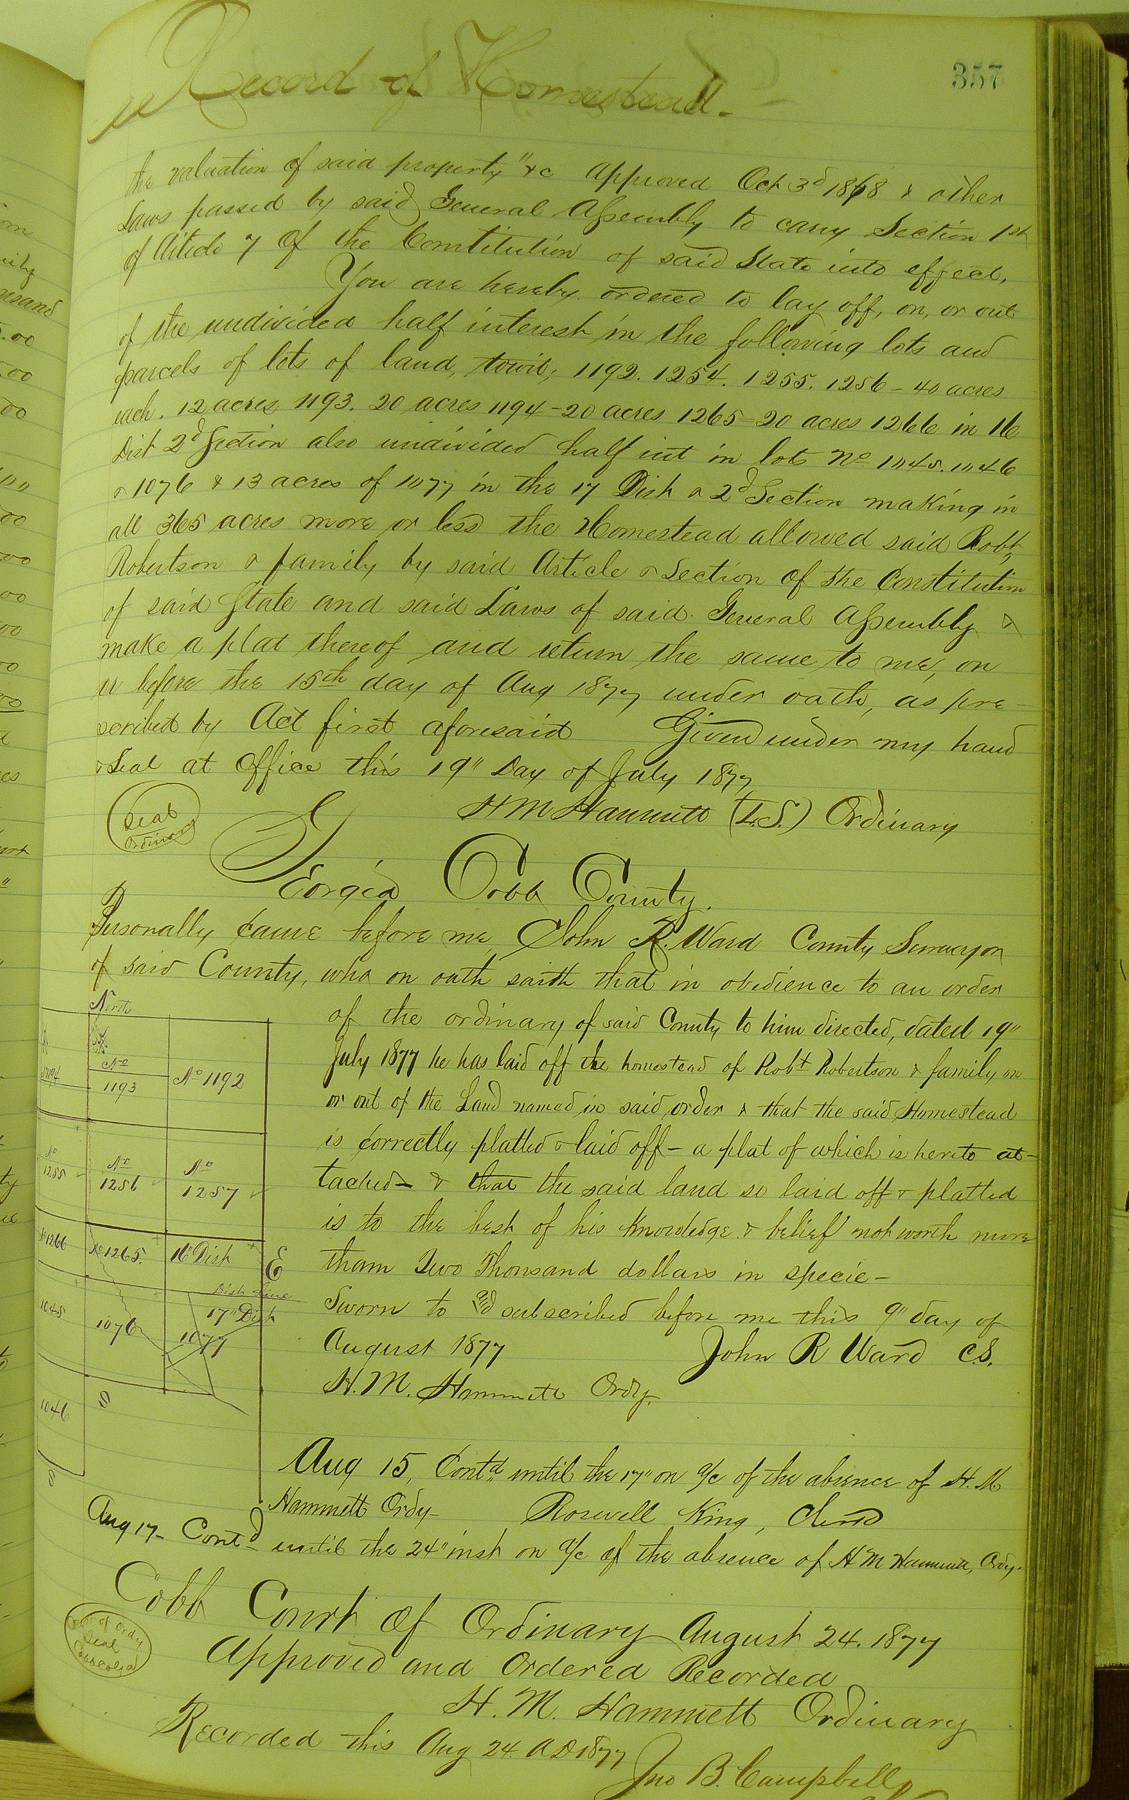 357
Record of Homestead.
the valuation of said property" &c approved Oct 3d 1868 & other
Laws passed by said General Assembly to carry Section 1st
of Article 7 of the Constitution of said State into effect,
You are hereby ordered to lay off, on, or out
of the undivided half interest in the following lots and
parcels of lots of land, towit; 1192. 1254. 1255. 1256 - 40 acres
each. 12 acres 1193. 20 acres 1194 - 20 acres 1265 - 20 acres 1266 in 16
Dist 2d Section also undivided half int in lots No 1045. 1046
& 1076 & 13 acres of 1077 in the 17 Dist & 2d Section making in
all 365 acres more or less the Homestead allowed said Robt
Robertson & family by said Article & Section of the Constitution
of said State and said Laws of said General Assembly &
make a plat thereof and return the same to me, on
or before the 15th day of Aug 1877 under oath, as pre-
scribed by Act first aforesaid Given under my hand
& Seal at office this 19" Day of July 1877
H M Hammett (L.S.) Ordinary
Seal
Ordinary
Georgia Cobb County.
Personally came before me John R. Ward County Surveyor
of said County, who on oath saith that in obedience to an order
of the ordinary of said County to him directed, dated 19"
July 1877 he has laid off the homestead of Robt Robertson & family on
or out of the Land named in said order & that the said Homestead
is correctly platted & laid off - a plat of which is hereto at-
tached - & that the said land so laid off & platted
is to the best of his knowledge & belief not worth more
than Two Thousand dollars in specie -
Sworn to and subscribed before me this 9" day of
August 1877 John R Ward CS.
H. M. Hammett Ordy.
North
No
1193
No 1192
No
1255
No
1256
No
1257
No 1266
No 1265.
16 Dist
E
Dist Line
17" Dist
1045
1076
1077
1046
S
S
Aug 15, Contd until the 17" on a/c of the absence of H. M
Hammett Ordy - Roswell King, Clerk
Aug 17 - Contd until the 24" inst on a/c of the absence of H M Hammett, Ordy.
Cobb Court of Ordinary August 24. 1877
Approved and Ordered Recorded
H. M. Hammett Ordinary
of Ordy
Seal
Recorded this Aug 24 A D 1877
Jno B. Campbell